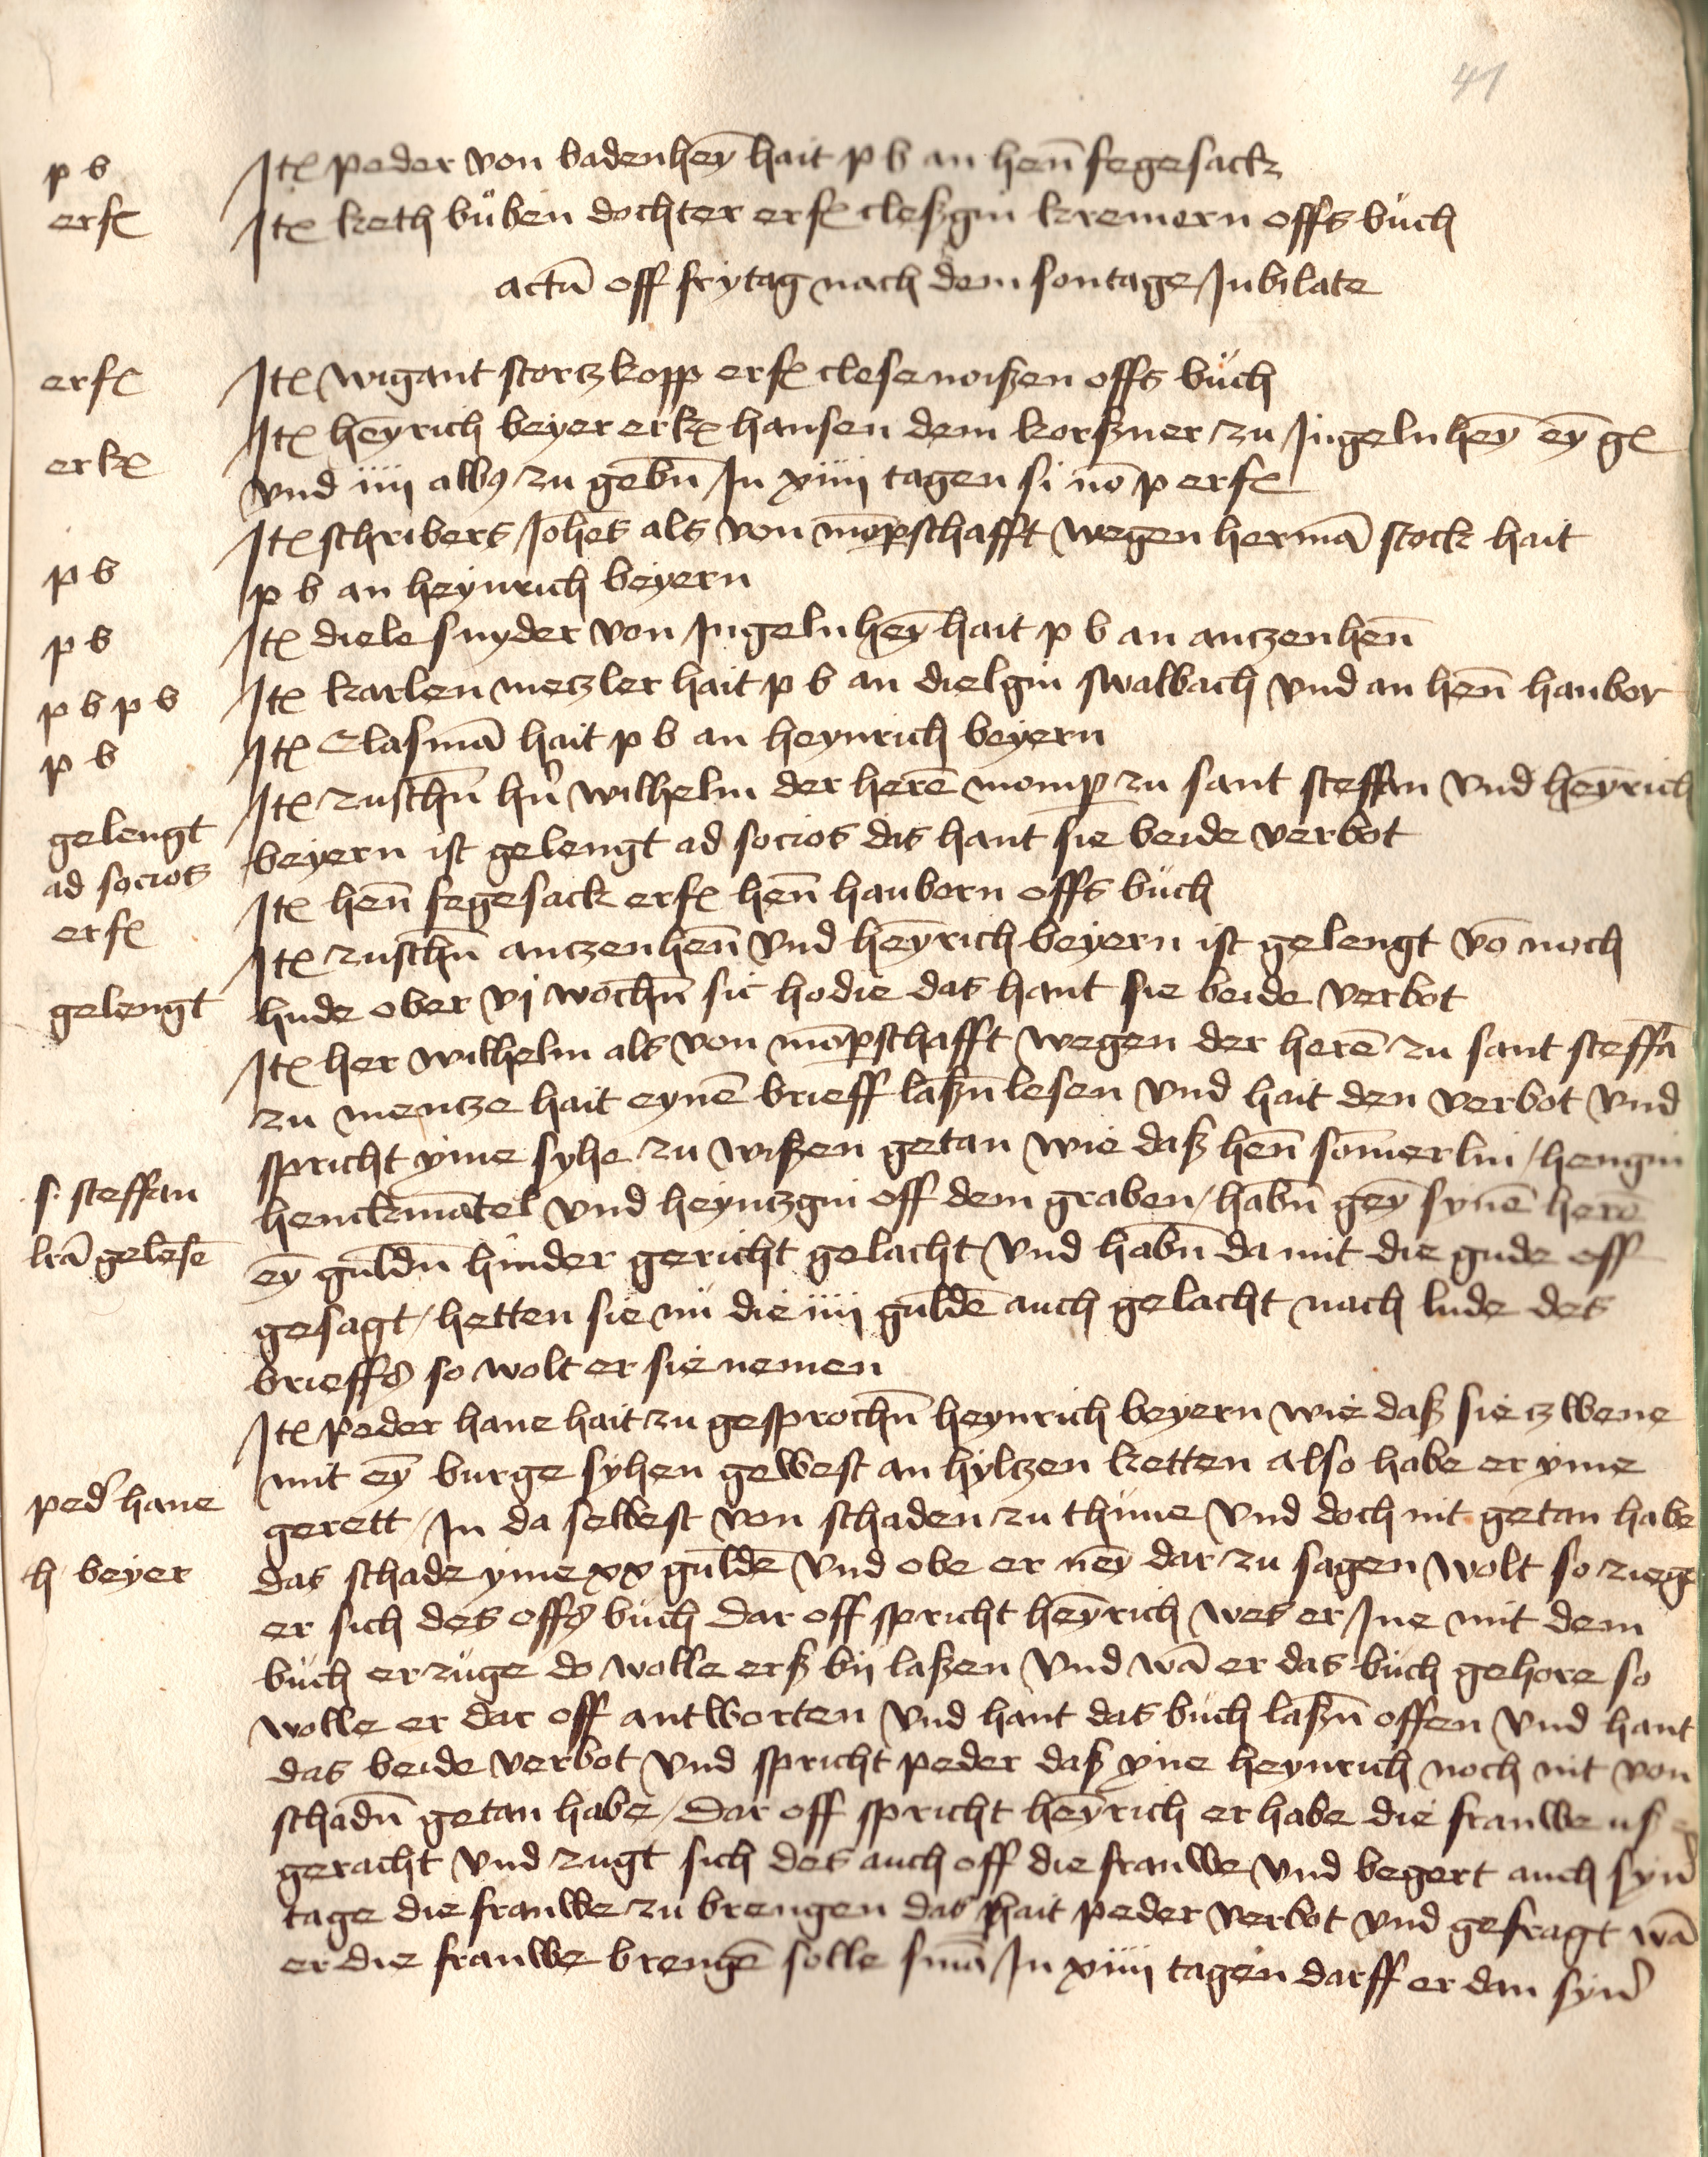 41
p b
Itē peder von badenheȳ hait p b an hen̄ fegesack
erfē
Itē keth bůben dochter erfē cleßgin kremern offs būch
actū off frytag nach dem sontage Jubilate
erfē
Itē wigant stortzkopp erfē clese noißen offs būch
erkē
Itē heȳrich beyer erkē hansen dem korßner zu Jngelnheȳ eȳ gē
vnd iiij albꝯ zu gebn̄ Jn xiiij tagen si nō p erfē
Itē schribers Johēs als von mōpschafft wegen hermā stock hait
p b
p b an heynrich beyern
p b
Itē diele snyder von Jngelnheȳ hait p b an antzenhen̄
p b p b
Itē karlen metzler hait p b an dielgin swalbach vnd an hen̄ hauber
p b
Itē Clasmā hait p b an heynrich beyern
Itē zuschn̄ hr̄n wilhelm der herē momp zu sant steffan vnd heȳrich
gelengt
beyern ist gelengt ad socios das hant sie beide verbot
ad socios
Itē hen̄ fegesack erfē hen̄ haubern offs būch
erfē
Itē zuschn̄ antzenhen̄ vnd heȳrich beyern ist gelengt vō noch
gelengt
hude ober vj wochn̄ sic hodie das hant sie beide verbot
Itē her wilhelm als von mōpschafft wegen der herē zu sant steffā
zu mentze hait eynē brieff laßn̄ lesen vnd hait den verbot vnd
spricht yme syhe zu wißen getan wie daß hen̄ som̄erlin / hengin
s. steffan
henckmātel vnd heyntzgin off dem graben / habn̄ geȳ synē herē
lrā gelesē
eȳ guldn̄ hinder gericht gelacht vnd habn̄ da mit die gude off
gesagt / hetten sie nū die iiij guldē auch gelacht nach lude des
brieffꝭ so wolt er sie nemen
Itē peder hane hait zu gesprochn̄ heynrich beyern wie daß sie tzwene
mit eȳ burge syhen gewest an hyltzen ketten also habe er yme
ped' hane
gerett / Jn da selbest von schaden zu thune vnd doch nit getan habe
h beyer
das schade yme xx guldē vnd obe er neȳ dar zu sagen wolt so ziege
er sich des offꝭ būch dar off spricht heȳrich wes er Jne mit dem
būch erzuge do wolle erß bij laßen vnd wā er das būch gehore so
wolle er dar off antworten vnd hant das būch laßn̄ offen vnd hant
das beide verbot vnd spricht peder daß yne heynrich noch nit von
schadn̄ getan habe / dar off spricht heȳrich er habe die frauwe uß
geracht vnd zugt sich des auch off die frauwe vnd begert auch syn'
tage die frauwe zu brengen das hait peder verbot vnd gefragt wā
er die frauwe brengē solle smā Jn xiiij tagen darff er dan syn'